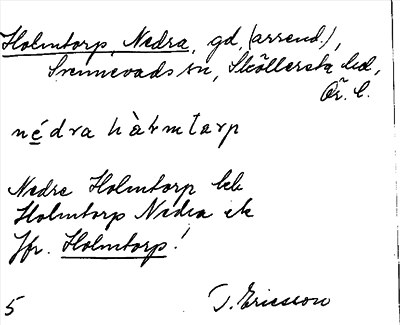 Holmtorp, Nedra, gd, (arrend.),
Svennevads sn, Sköllersta hd,
Ör. l.
nédra hàɫmtarp
Nedre Holmtorp kb
Holmtorp Nedra ek
Jfr. Holmtorp!
5 T. Ericsson